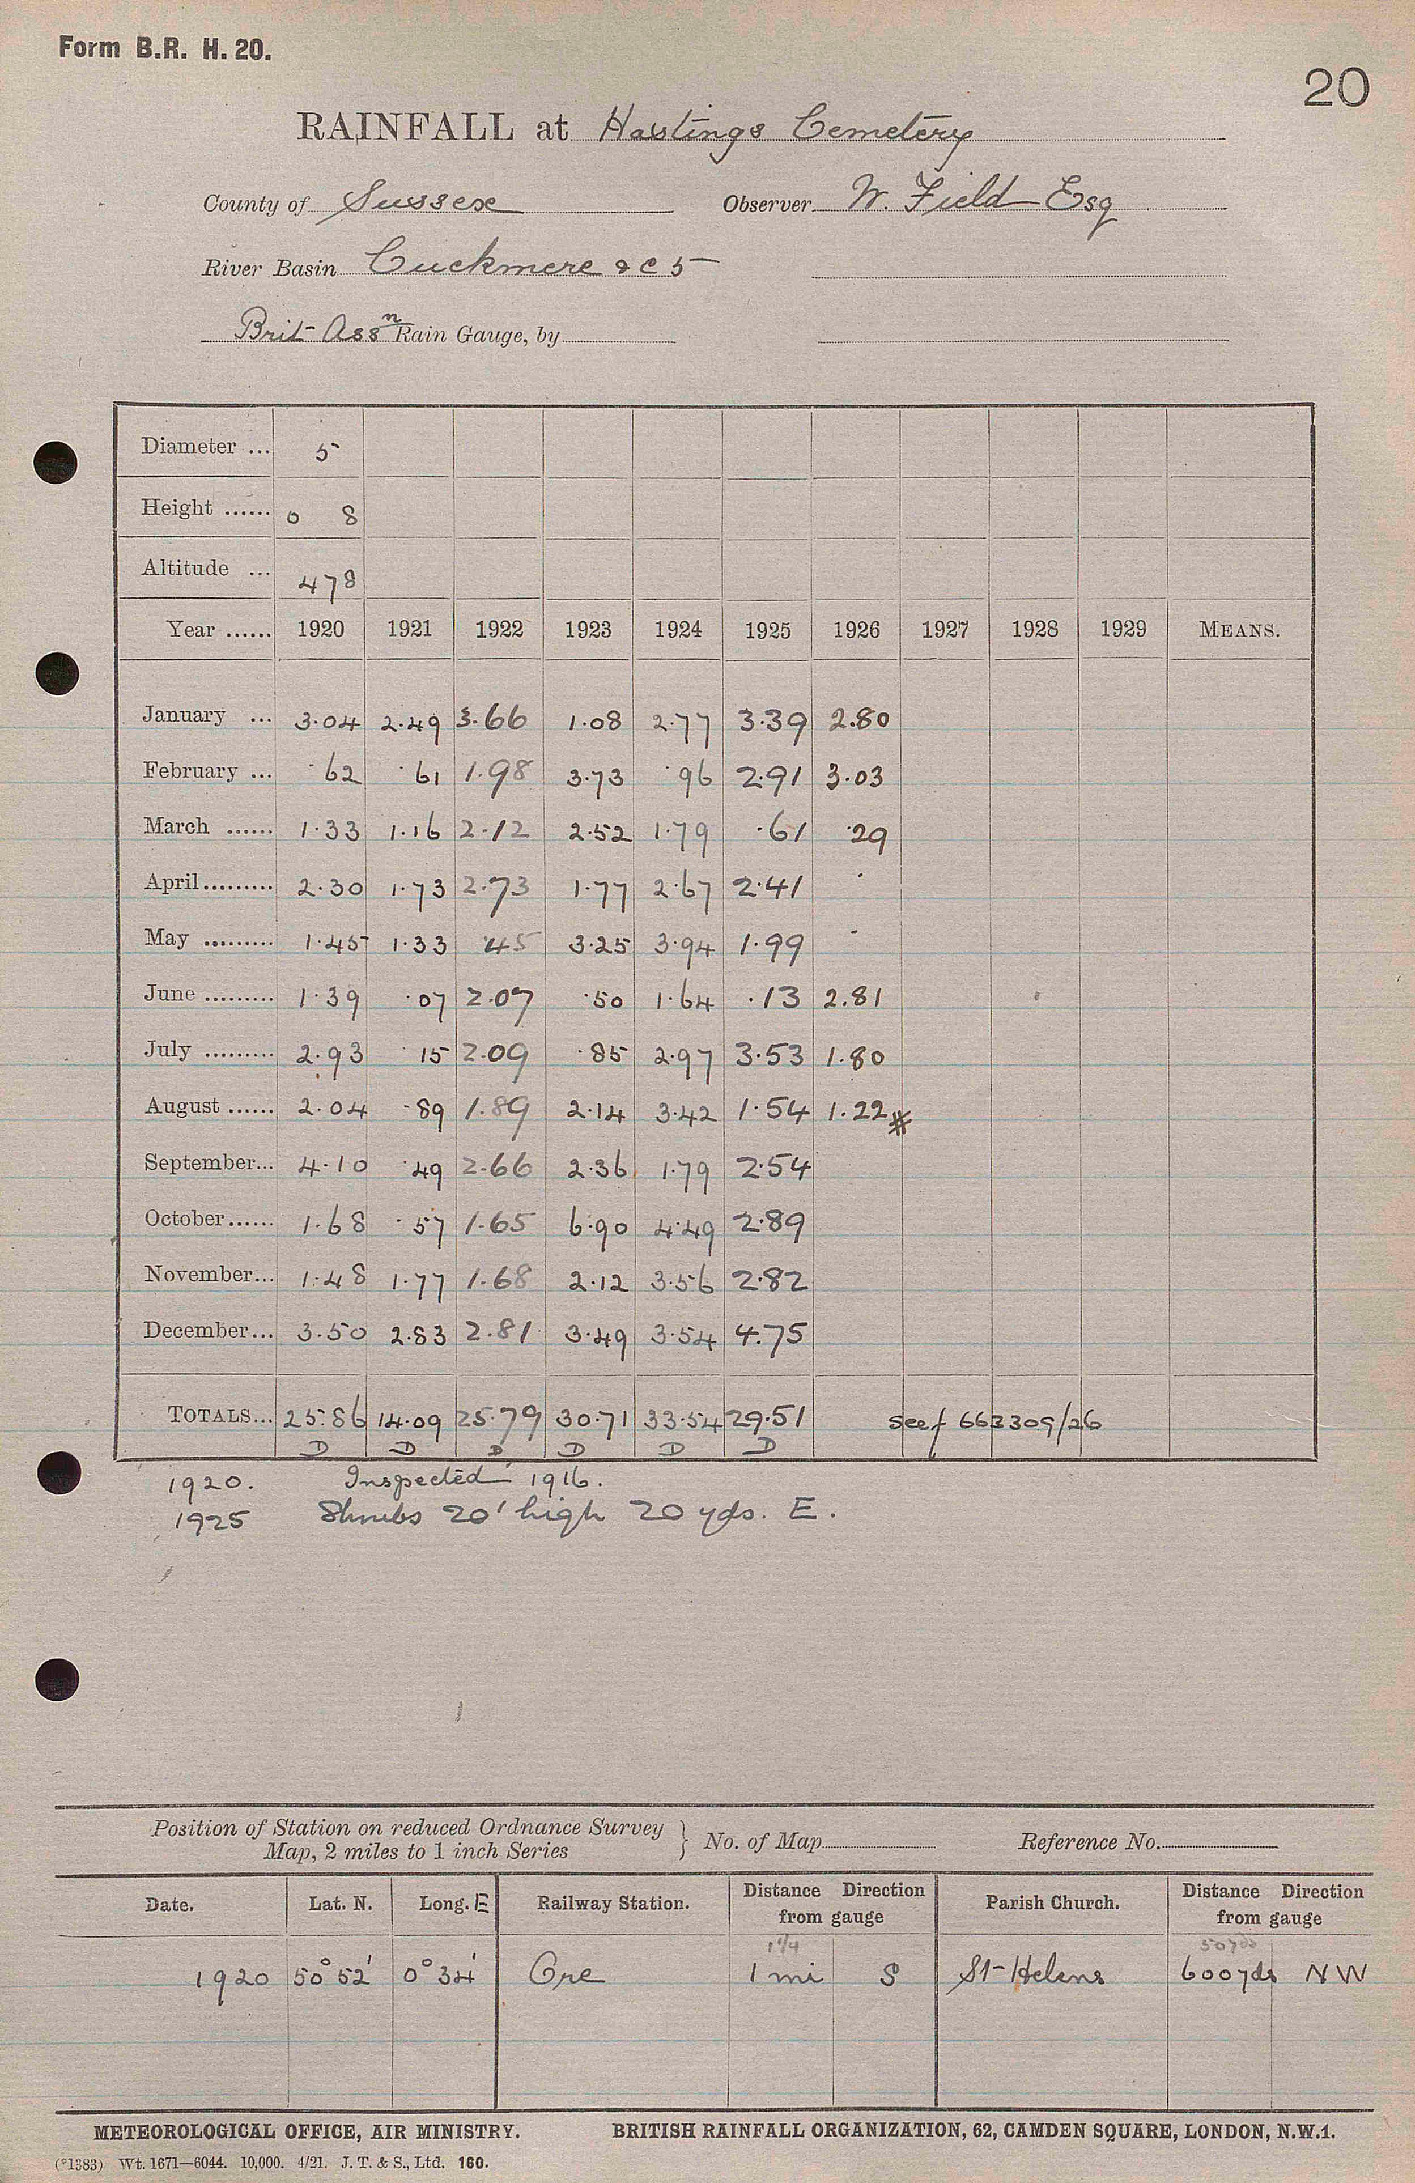 Form B.R. H. 20.
20
RAINFALL at Hastings Cemetery
County of Sussex Observer W. Field Esq
River Basin Cuckmere &c 5
Brit Assn Rain Gauge, by
Diameter ... 5
Height ...... 0 8
Altitude ... 478
Year ...... 1920 1921 1922 1923 1924 1925 1926 1927 1928 1929 MEANS.
January ... 3.04 2.49 3.66 1.08 2.77 3.39 2.80
February ... .62 .61 1.98 3.73 .96 2.91 3.03
March ...... 1.33 1.16 2.12 2.52 1.79 .61 .29
April ......... 2.30 1.73 2.73 1.77 2.67 2.41 .
May ......... 1.45 1.33 .45 3.25 3.94 1.99 .
June ......... 1.39 .07 2.07 .50 1.64 .13 2.81
July ......... 2.93 .15 2.09 .85 2.97 3.53 1.80
August ...... 2.04 .89 1.89 2.14 3.42 1.54 1.22 *
September... 4.10 .49 2.66 2.36 1.79 2.54
October...... 1.68 .57 1.65 6.90 4.49 2.89
November... 1.48 1.77 1.68 2.12 3.56 2.82
December... 3.50 2.83 2.81 3.49 3.54 4.75
TOTALS... 25.86 14.09 25.79 30.71 33.54 29.51 see f 663309/26
D D D D D D
1920. Inspected 1916.
1925 Shrubs 20' high 20 yds. E.
Position of Station on reduced Ordnance Survey
Map, 2 miles to 1 inch Series } No. of Map Reference No.
Date. Lat. N. Long. E Railway Station. Distance Direction from gauge Parish Church. Distance Direction from gauge
1 1/4
1920 50° 52' 0° 34' Ore 1 mi S St Helens 600 yds NW
METEOROLOGICAL OFFICE, AIR MINISTRY. BRITISH RAINFALL ORGANIZATION, 62, CAMDEN SQUARE, LONDON, N.W.1.
(*1383) Wt. 1671—6044. 10,000. 4/21. J. T. & S., Ltd. 160.